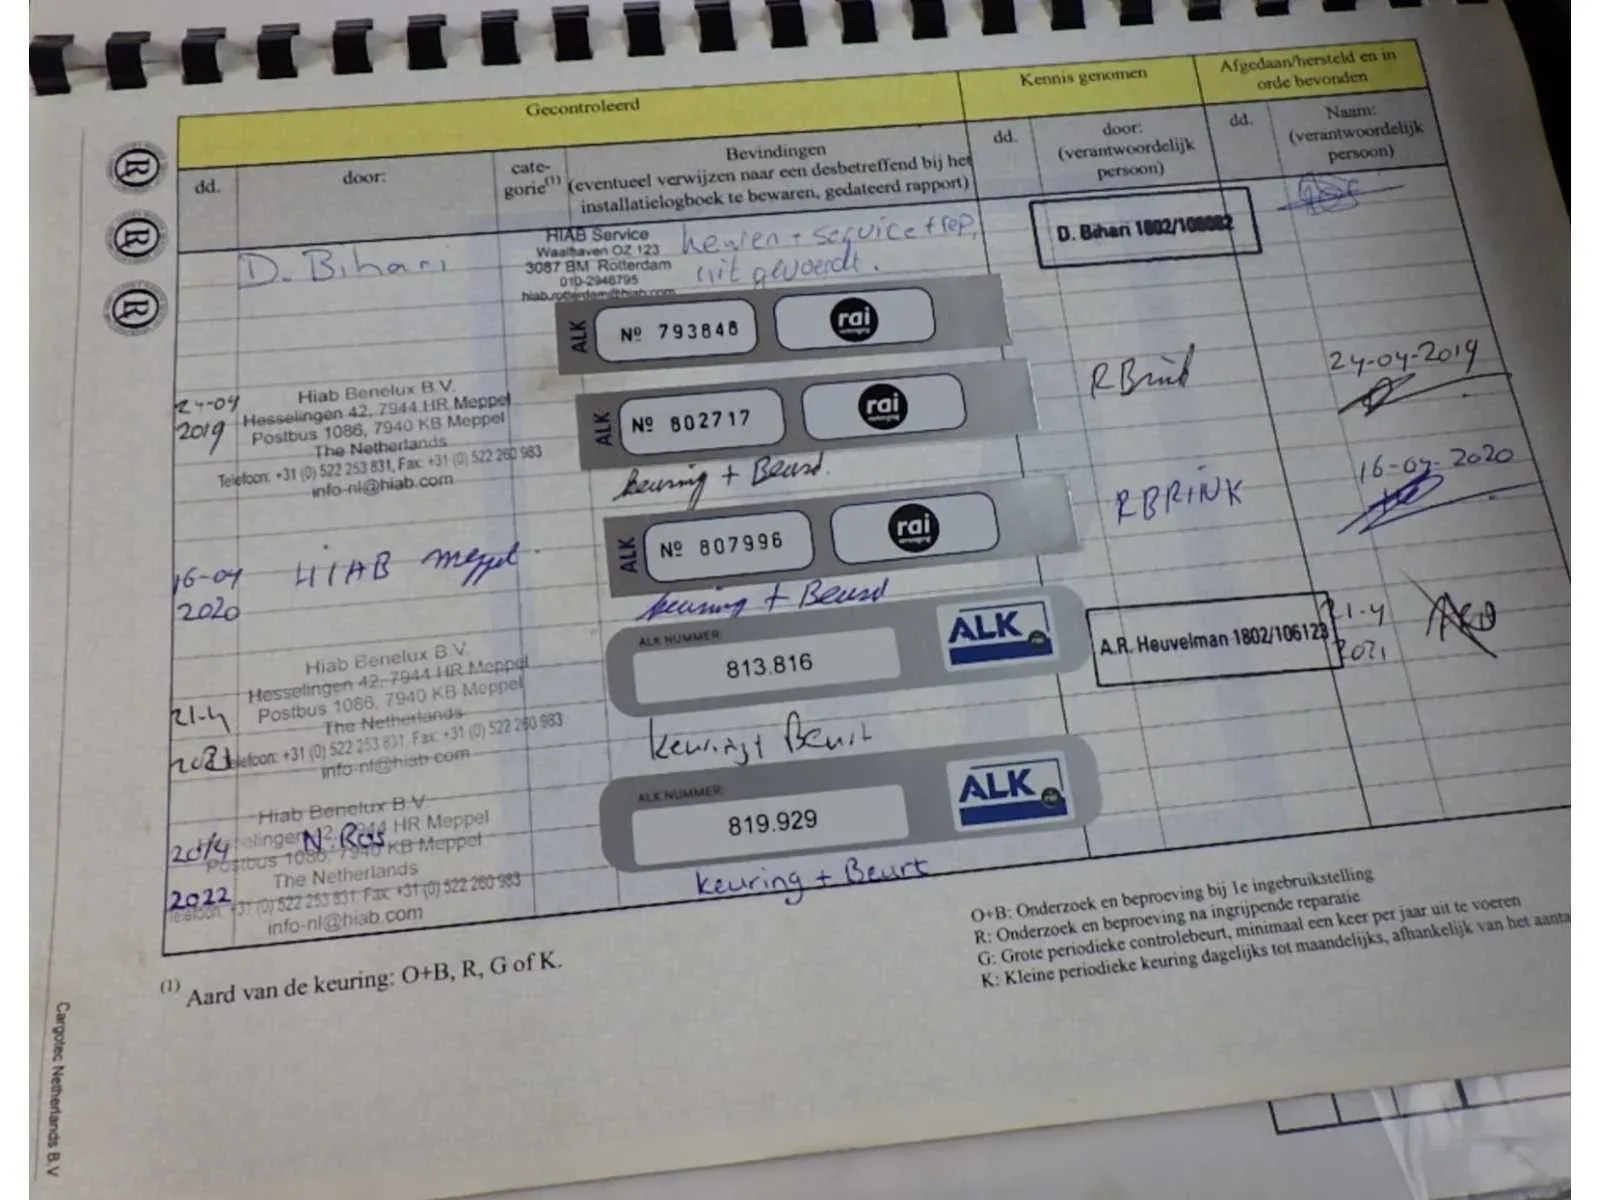 Gecontroleerd
Kennis genomen
Afgedaan/hersteld en in
orde bevonden
dd.
door:
cate-
gorie(1)
Bevindingen
(eventueel verwijzen naar een desbetreffend bij het
installatielogboek te bewaren, gedateerd rapport)
dd.
door:
(verantwoordelijk
persoon)
dd.
Naam:
(verantwoordelijk
persoon)
D. Bihari
HIAB Service
Waalhaven OZ 123
3087 BM Rotterdam
010-2946795
hiab.rotterdam@hiab.com
keuren + service + rep.
uit gevoerdt.
D. Bihari 1802/106082
ALK
Nº 793848
rai
vereniging
24-04
2019
Hiab Benelux B.V.
Hesselingen 42, 7944 HR Meppel
Postbus 1086, 7940 KB Meppel
The Netherlands
Telefoon: +31 (0) 522 253 831, Fax: +31 (0) 522 260 983
info-nl@hiab.com
ALK
Nº 802717
rai
vereniging
keuring + Beurd.
R Brink
24-04-2019
16-04
2020
HIAB Meppel.
ALK
Nº 807996
rai
vereniging
keuring + Beurd
R BRINK
16-04-2020
21-4
2021
Hiab Benelux B.V.
Hesselingen 42, 7944 HR Meppel
Postbus 1086, 7940 KB Meppel
The Netherlands
Telefoon: +31 (0) 522 253 831 Fax: +31 (0) 522 260 983
info-nl@hiab.com
ALK NUMMER:
813.816
ALK
keuring + Beurt
A.R. Heuvelman 1802/106123
21-4
2021
20/4
2022
Hiab Benelux B.V.
N. Ros
Hesselingen 42, 7944 HR Meppel
Postbus 1086, 7940 KB Meppel
The Netherlands
Telefoon: +31 (0) 522 253 831 Fax: +31 (0) 522 260 983
info-nl@hiab.com
ALK NUMMER:
819.929
ALK
keuring + Beurt
(1) Aard van de keuring: O+B, R, G of K.
O+B: Onderzoek en beproeving bij 1e ingebruikstelling
R: Onderzoek en beproeving na ingrijpende reparatie
G: Grote periodieke controlebeurt, minimaal een keer per jaar uit te voeren
K: Kleine periodieke keuring dagelijks tot maandelijks, afhankelijk van het aanta
Cargotec Netherlands B.V